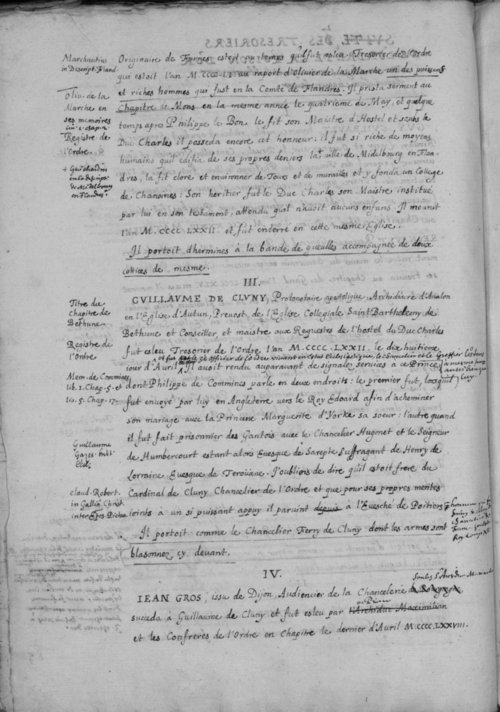 SVITTE DES TRESORIERS
Marchantius
in Descript. Fland.
Originaire de estoit au temps qu'il fut esleu Tresorier de l'Ordre
que estoit l'an M CCCC au raport d'Olivier de la Marche un des puissens
et riches hommes qui fust en la Comté de Flandres. Il presta serment au
Oliv. de la
Marche en
ses memoires
Registre de
l'Ordre.
Chapitre de Mons en la mesme année le quatriéme de May, et quelque
temps apres Philippe le Bon le fit son Maistre d'Hostel et soubs le
Duc Charles il posseda encore cet honneur, il fut si riche de moyens
humains qu'il edifia de ses propres deniers la ville de Midelbourg en Flan-
dres, la fit clore et environner de Tours et de murailles et y fonda un College
de Chanoines: Son heritier fut le Duc Charles son Maistre institué
par lui en son testament, attendu qu'il n'avoit aucuns enfans. Il mourut
l'an M. CCCC LXXII. et fut interré en cette mesme Eglise.
+ Guichardin
en la descrip.
de Middelbourg
en Flandres.
Il portoit d'hermines à la bande de gueulles accompagnée de deux
cotices de mesme.
III
Titre du
Chapitre de
Bethune.
GVILLAVME DE CLVNY, Protonotaire apostolique Archidiacre d'Avalon
en l'Eglise d'Autun, Prevost de l'Eglise Collegiale Saint Barthelemy de
Bethune et Conseiller et maistre aux Requestes de l'hostel du Duc Charles
Registre de
l'Ordre
fut esleu Tresorier de l'Ordre l'an M. CCCC. LXXII. le dix huitiéme
jour d'Avril, Il avoit rendu auparavant de signalez services a ce Prince,
Mem. de Commines
lib. 1. Chap. 5. et
lib. 5. Chap. 17.
dont Philippe de Commines parle en deux endroits: le premier fut, lorsqu'il
fut envoyé par luy en Angleterre vers le Roy Edoard afin d'acheminer
son mariage avec la Princesse Marguerite d'Yorke sa soeur: l'autre quand
il fut fait prisonnier des Gantois avec le Chancelier Hugonet et le Seigneur
Guillaume
Gazet
de Humbercourt estant alors Evesque de Sarepte Suffragant de Henry de
Lorraine Evesque de Terouane. J'oubliois de dire qu'il estoit frere du
Claud. Robert.
in Gallia Christ.
inter Epos Pictav.
Cardinal de Cluny Chancelier de l'Ordre et que pour ses propres merites
joincts à un si puissant appuy il parvint depuis à l'Evesché de Poitiers
Il portoit comme le Chancelier Ferry de Cluny dont les armes sont
blasonnez cy devant.
IV.
IEAN GROS, issu de Dijon, Audiencier de la Chancelerie de Bourgogne
succeda à Guillaume de Cluny et fut esleu par l'Archiduc Maximilian
et les Confreres de l'Ordre en Chapitre le dernier d'Avril M.CCCC.LXXVIII.